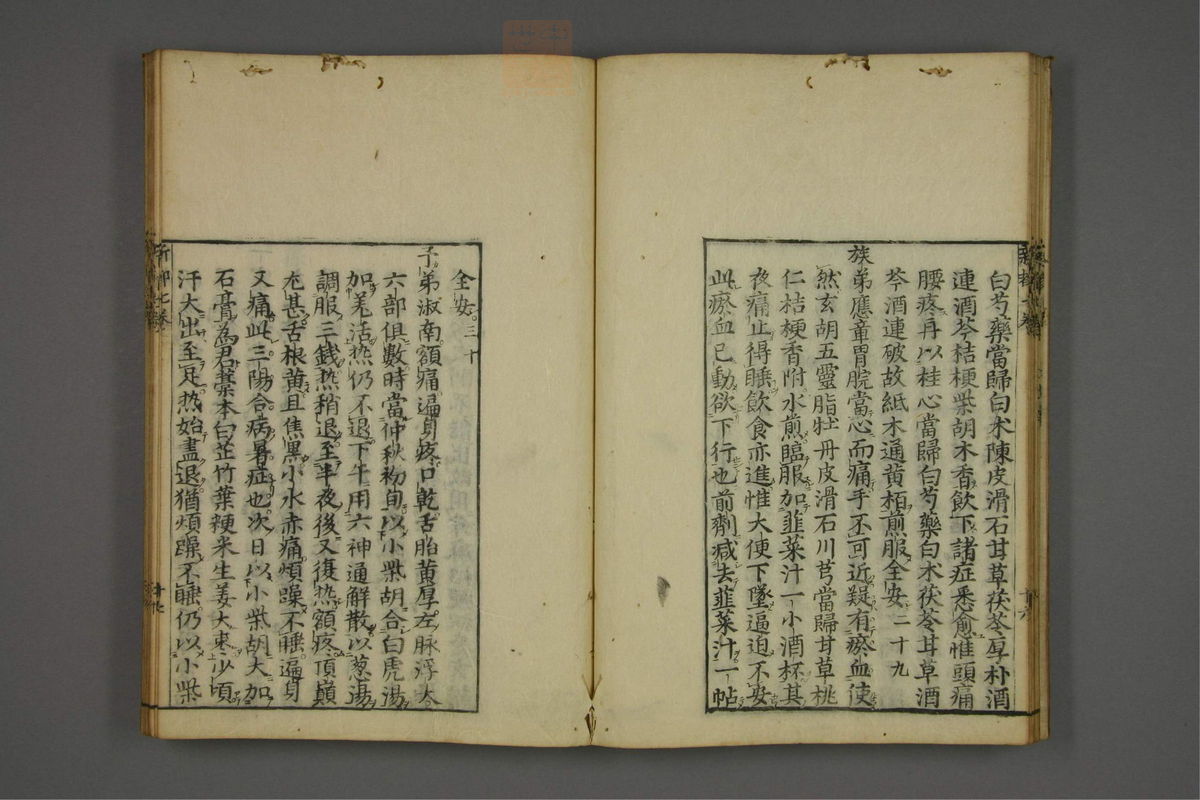 白芍藥當歸白朮陳皮滑石甘草茯苓厚朴酒
連酒芩桔梗柴胡木香飲下諸症悉愈惟頭痛
腰疼再以桂心當歸白芍藥白朮茯苓甘草酒
芩酒連破故紙木通黄栢煎服全安二十九
族弟應童胃脘當心而痛手不可近疑有瘀血使
然玄胡五靈脂牡丹皮滑石川芎當歸甘草桃
仁桔梗香附水煎臨服加韮菜汁一小酒杯其
夜痛止得睡飲食亦進惟大便下墜逼迫不安
此瘀血已動欲下行也前劑减去韮菜汁一帖
全安三十
予弟淑南額痛遍身疼口乾舌胎黄厚左脉浮大
六部俱數時當仲秋初旬以小柴胡合白虎湯
加羌活热仍不退下午用六神通解散以葱湯
調服三錢热稍退至半夜後又復热額疼頂巔
尤甚舌根黄且焦黑小水赤痛煩躁不睡遍身
又痛此三陽合病暑症也次日以小柴胡大加
石膏為君藁本白芷竹葉粳米生姜大棗少頃
汗大出至足热始盡退猶煩躁不睡仍以小柴